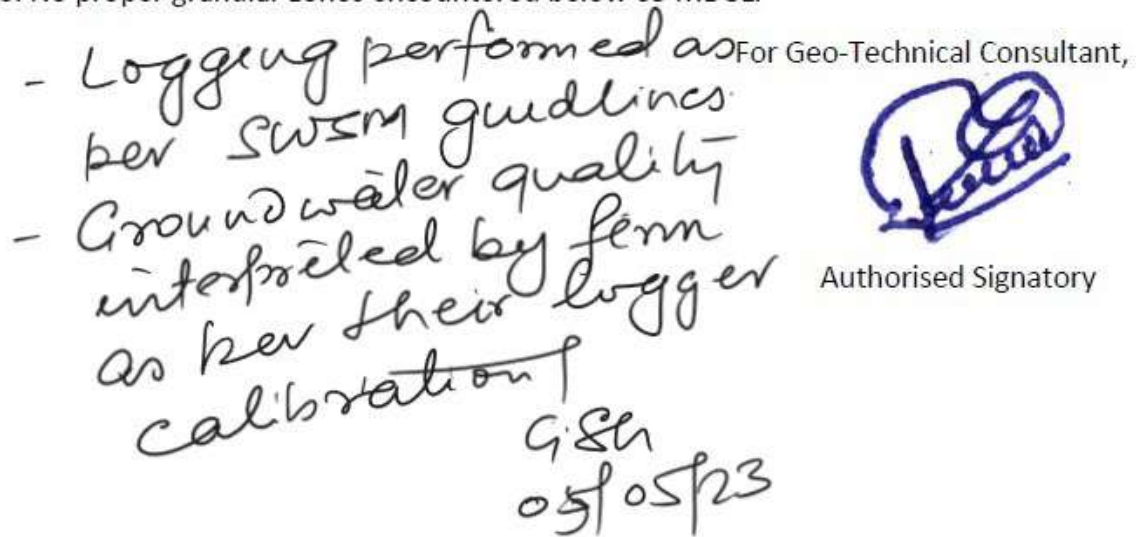 No proper granular zones encountered below
- Logging performed as
per SWSM guidlines
- Groundwater quality
interpreted by firm
as per their logger
calibration
GSH
05/05/23
For Geo-Technical Consultant,
Authorised Signatory